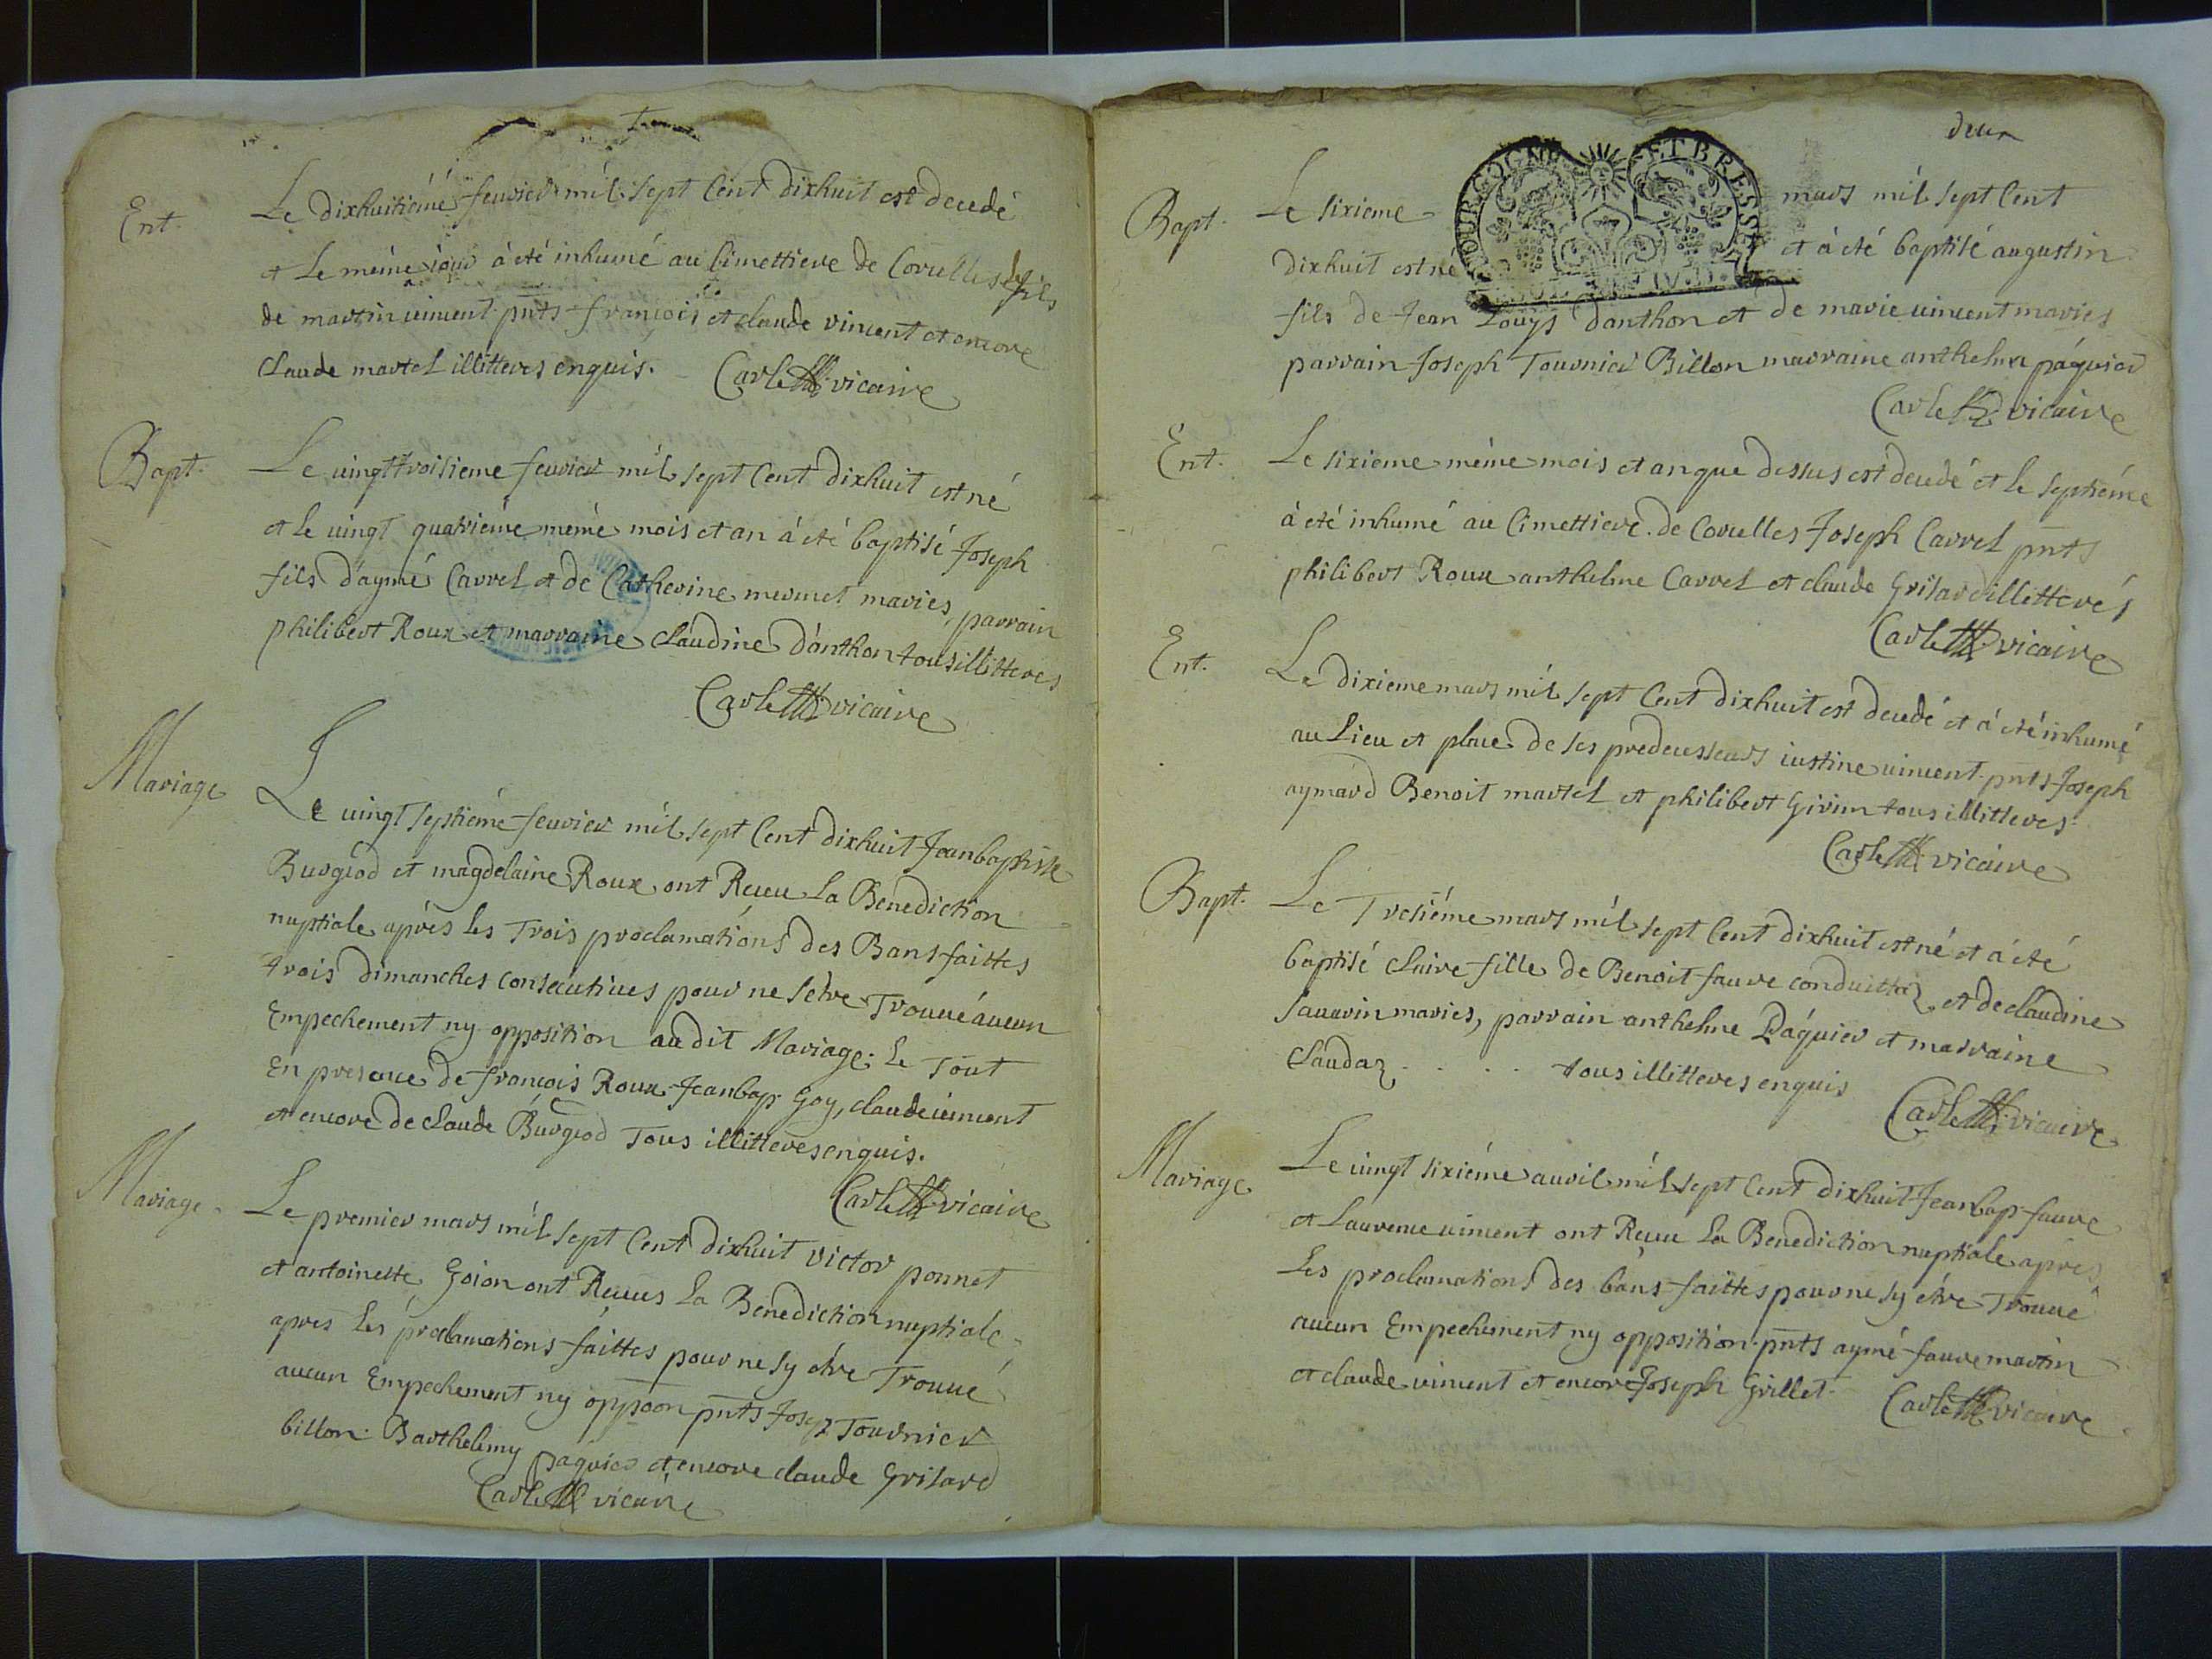 Ent. Le dixhuitiéme feuvier mil sept Cent dixhuit est decedé
et Le méme iour à été inhumé au Cimettiere de Corcelles fils
de martin vincent pnts françois et claude vincent et encore
Claude martel illitteres enquis. Carle vicaire
Bapt. Le vingt troisieme feuvier mil sept Cent dixhuit est né
et le vingt quatriéme méme mois et an à été baptisé Joseph
fils d'aymé Carrel et de Catherine mermet maries, parrain
philibert Roux et marraine claudine d'anthon tous illitteres
Carle vicaire
Mariage Le vingt septiéme feuvier mil sept Cent dixhuit Jean baptiste
Burgiod et magdelaine Roux ont Receu La Benediction
nuptiale aprés les Trois proclamations des Bans faittes
trois dimanches consecutives pour ne s'étre Trouué aucun
Empechement ny opposition audit Mariage: Le Tout
En presence de françois Roux Jeanbap. Goy, claude vincent
et encore de claude Burgiod Tous illitteres enquis.
Carle vicaire
Mariage. Le premier mars mil sept Cent dixhuit victor ponnet
et antoinette Goion ont Receus La Benediction nuptiale
apres les proclamations faittes pour ne sy étre Trouué
aucun Empechement ny oppoon pnts Josep Tournier
billon. Barthelemy paquier et encore claude Grisard
Carle vicaire
deux
BOURGOGNE ET BRESSE
Bapt. Le sixieme mars mil sept Cent
dixhuit est né et à été baptisé augustin
fils de Jean Louys danthon et de marie vincent maries
parrain Joseph Tournier Billon marraine anthelma páquier
Carle vicaire
Ent. Le sixieme méme mois et an que dessus est decedé et le septiéme
à eté inhumé au Cimettiere de Corcelles Joseph Carrel pnts
philibert Roux anthelme Carrel et claude Grisard illitterés
Carle vicaire
Ent. Le dixieme mars mil sept Cent dixhuit est decedé et à eté inhumé
au Lieu et place de ses predecesseurs iustine vincent pnts Joseph
aymard Benoit martel et philibert Girin tous illitteres.
Carle vicaire
Bapt. Le Tresiéme mars mil sept Cent dixhuit est né et à été
baptisé claire fille de Benoit faure conduittaz et de claudine
sauarin maries, parrain anthelme Páquier et marraine
Claudaz . . . . tous illitteres enquis
Carle vicaire
Mariage Le vingt sixiéme auril mil sept Cent dixhuit Jeanbap faure
et Laurence vincent ont Receu La Benediction nuptiale aprés
Les proclamations des bans faittes pour ne sy étre Trouué
aucun Empechement ny opposition. pnts aymé faure martin
et claude vincent et encore Joseph Grillet.
Carle vicaire